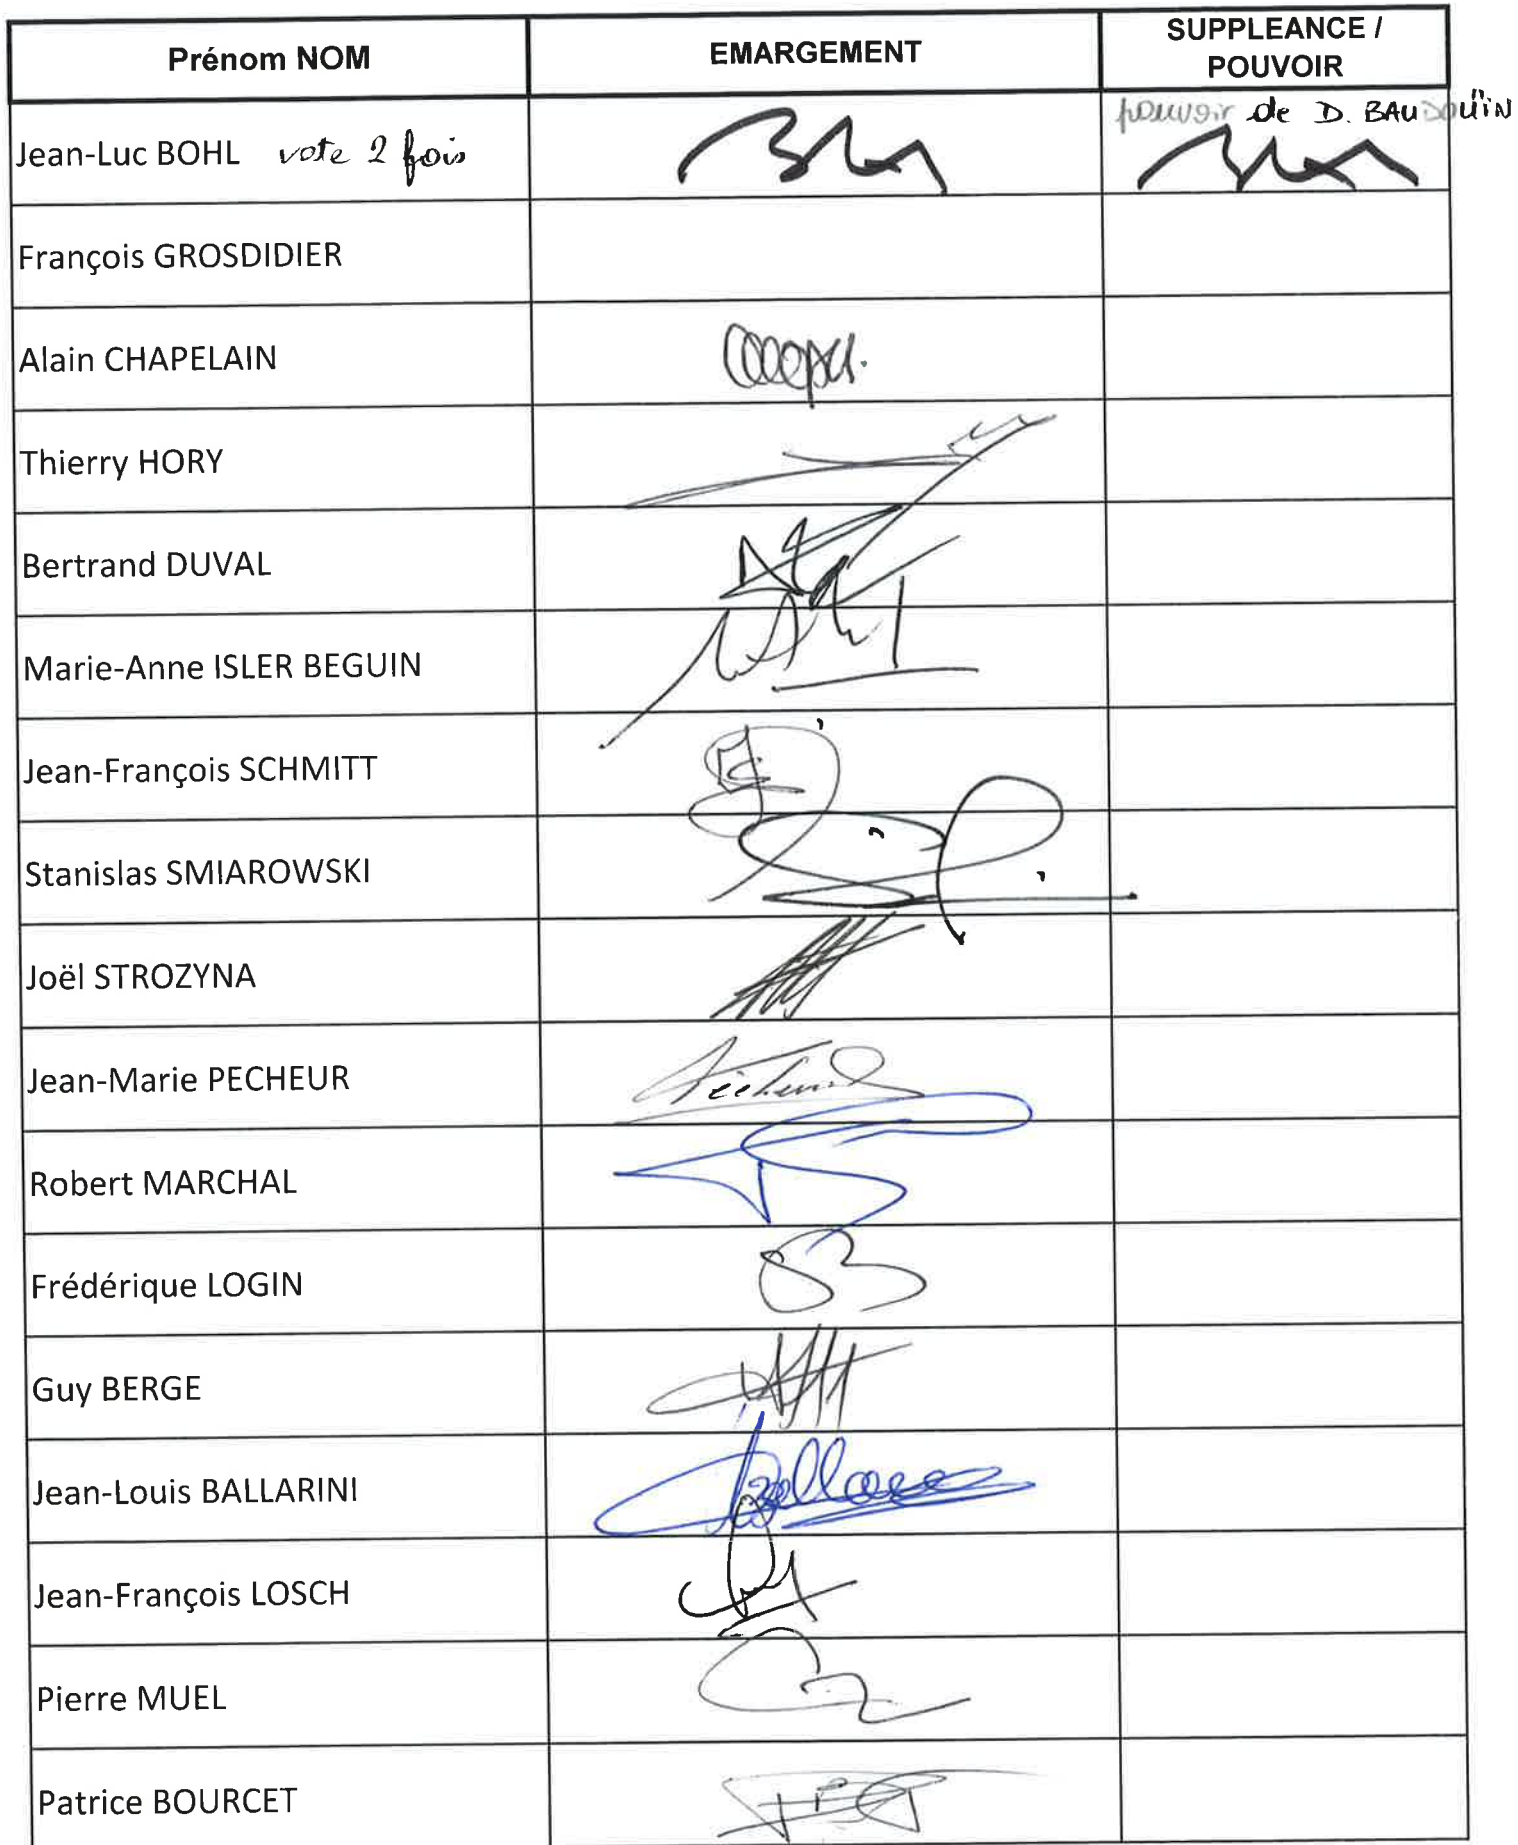 Prénom NOM EMARGEMENT SUPPLEANCE /
POUVOIR
pouvoir de D. BAUDOUÏN
Jean-Luc BOHL vote 2 fois
François GROSDIDIER
Alain CHAPELAIN
Thierry HORY
Bertrand DUVAL
Marie-Anne ISLER BEGUIN
Jean-François SCHMITT
Stanislas SMIAROWSKI
Joël STROZYNA
Jean-Marie PECHEUR
Robert MARCHAL
Frédérique LOGIN
Guy BERGE
Jean-Louis BALLARINI
Jean-François LOSCH
Pierre MUEL
Patrice BOURCET